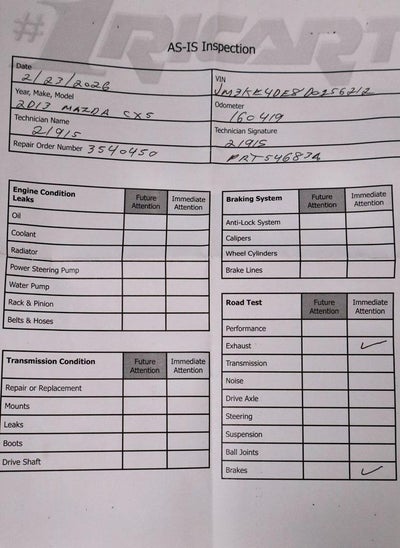 #1 RICART
AS-IS Inspection
Date
2/23/2026
VIN
Year, Make, Model
2013 MAZDA CX5
Odometer
160419
Technician Name
21915
Technician Signature
21915
Repair Order Number 3540450
Engine Condition
Leaks
Future Attention
Immediate Attention
Oil
Coolant
Radiator
Power Steering Pump
Water Pump
Rack & Pinion
Belts & Hoses
Transmission Condition
Future Attention
Immediate Attention
Repair or Replacement
Mounts
Leaks
Boots
Drive Shaft
Braking System
Future Attention
Immediate Attention
Anti-Lock System
Calipers
Wheel Cylinders
Brake Lines
Road Test
Future Attention
Immediate Attention
Performance
Exhaust ✓
Transmission
Noise
Drive Axle
Steering
Suspension
Ball Joints
Brakes ✓